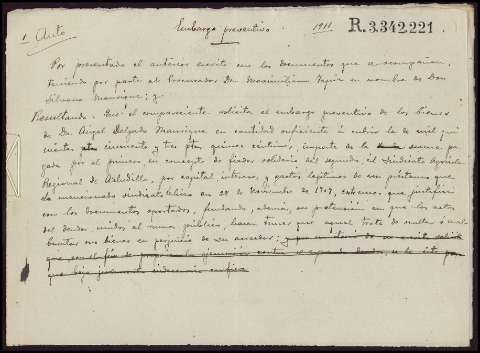 1 Auto
Embargo preventivo 1911 R.3.342.221
Por presentado el anterior escrito con los documentos que se acompañan,
teniendo por parte al Procurador Don Maximiliano en nombre de Don
Silvano Manrique; y
Resultando: Que el compareciente solicita el embargo preventivo de los bienes
de Dn. Angel Delgado Manrique en cantidad suficiente á cubrir la de mil qui
nientas cincuenta y tres ptas. quince céntimos, importe de la suma pa
gada por el primero en concepto de fiador solidario del segundo, al Sindicato Agrícola
Regional de Astudillo, por capital, intereses, y gastos legítimos de un préstamo que
la mencionada en 28 de Noviembre de 1907, extremos que justifica
con los documentos aportados, fundando, además, su pretensión en que los actos
del deudor, unidos al rumor público, hacen temer que aquel trate de ocultar ó mal
baratar sus bienes en perjuicio de su acreedor;